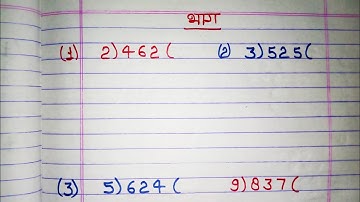 भाग
(1) 2)462( (२) 3)525(
(3) 5)624( 9)837(